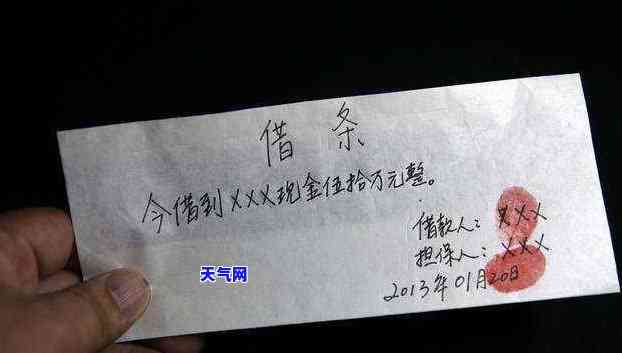 借条
今借到XXX现金伍拾万元整。
借款人：XXX
担保人：XXX
2013年01月20日
天气网